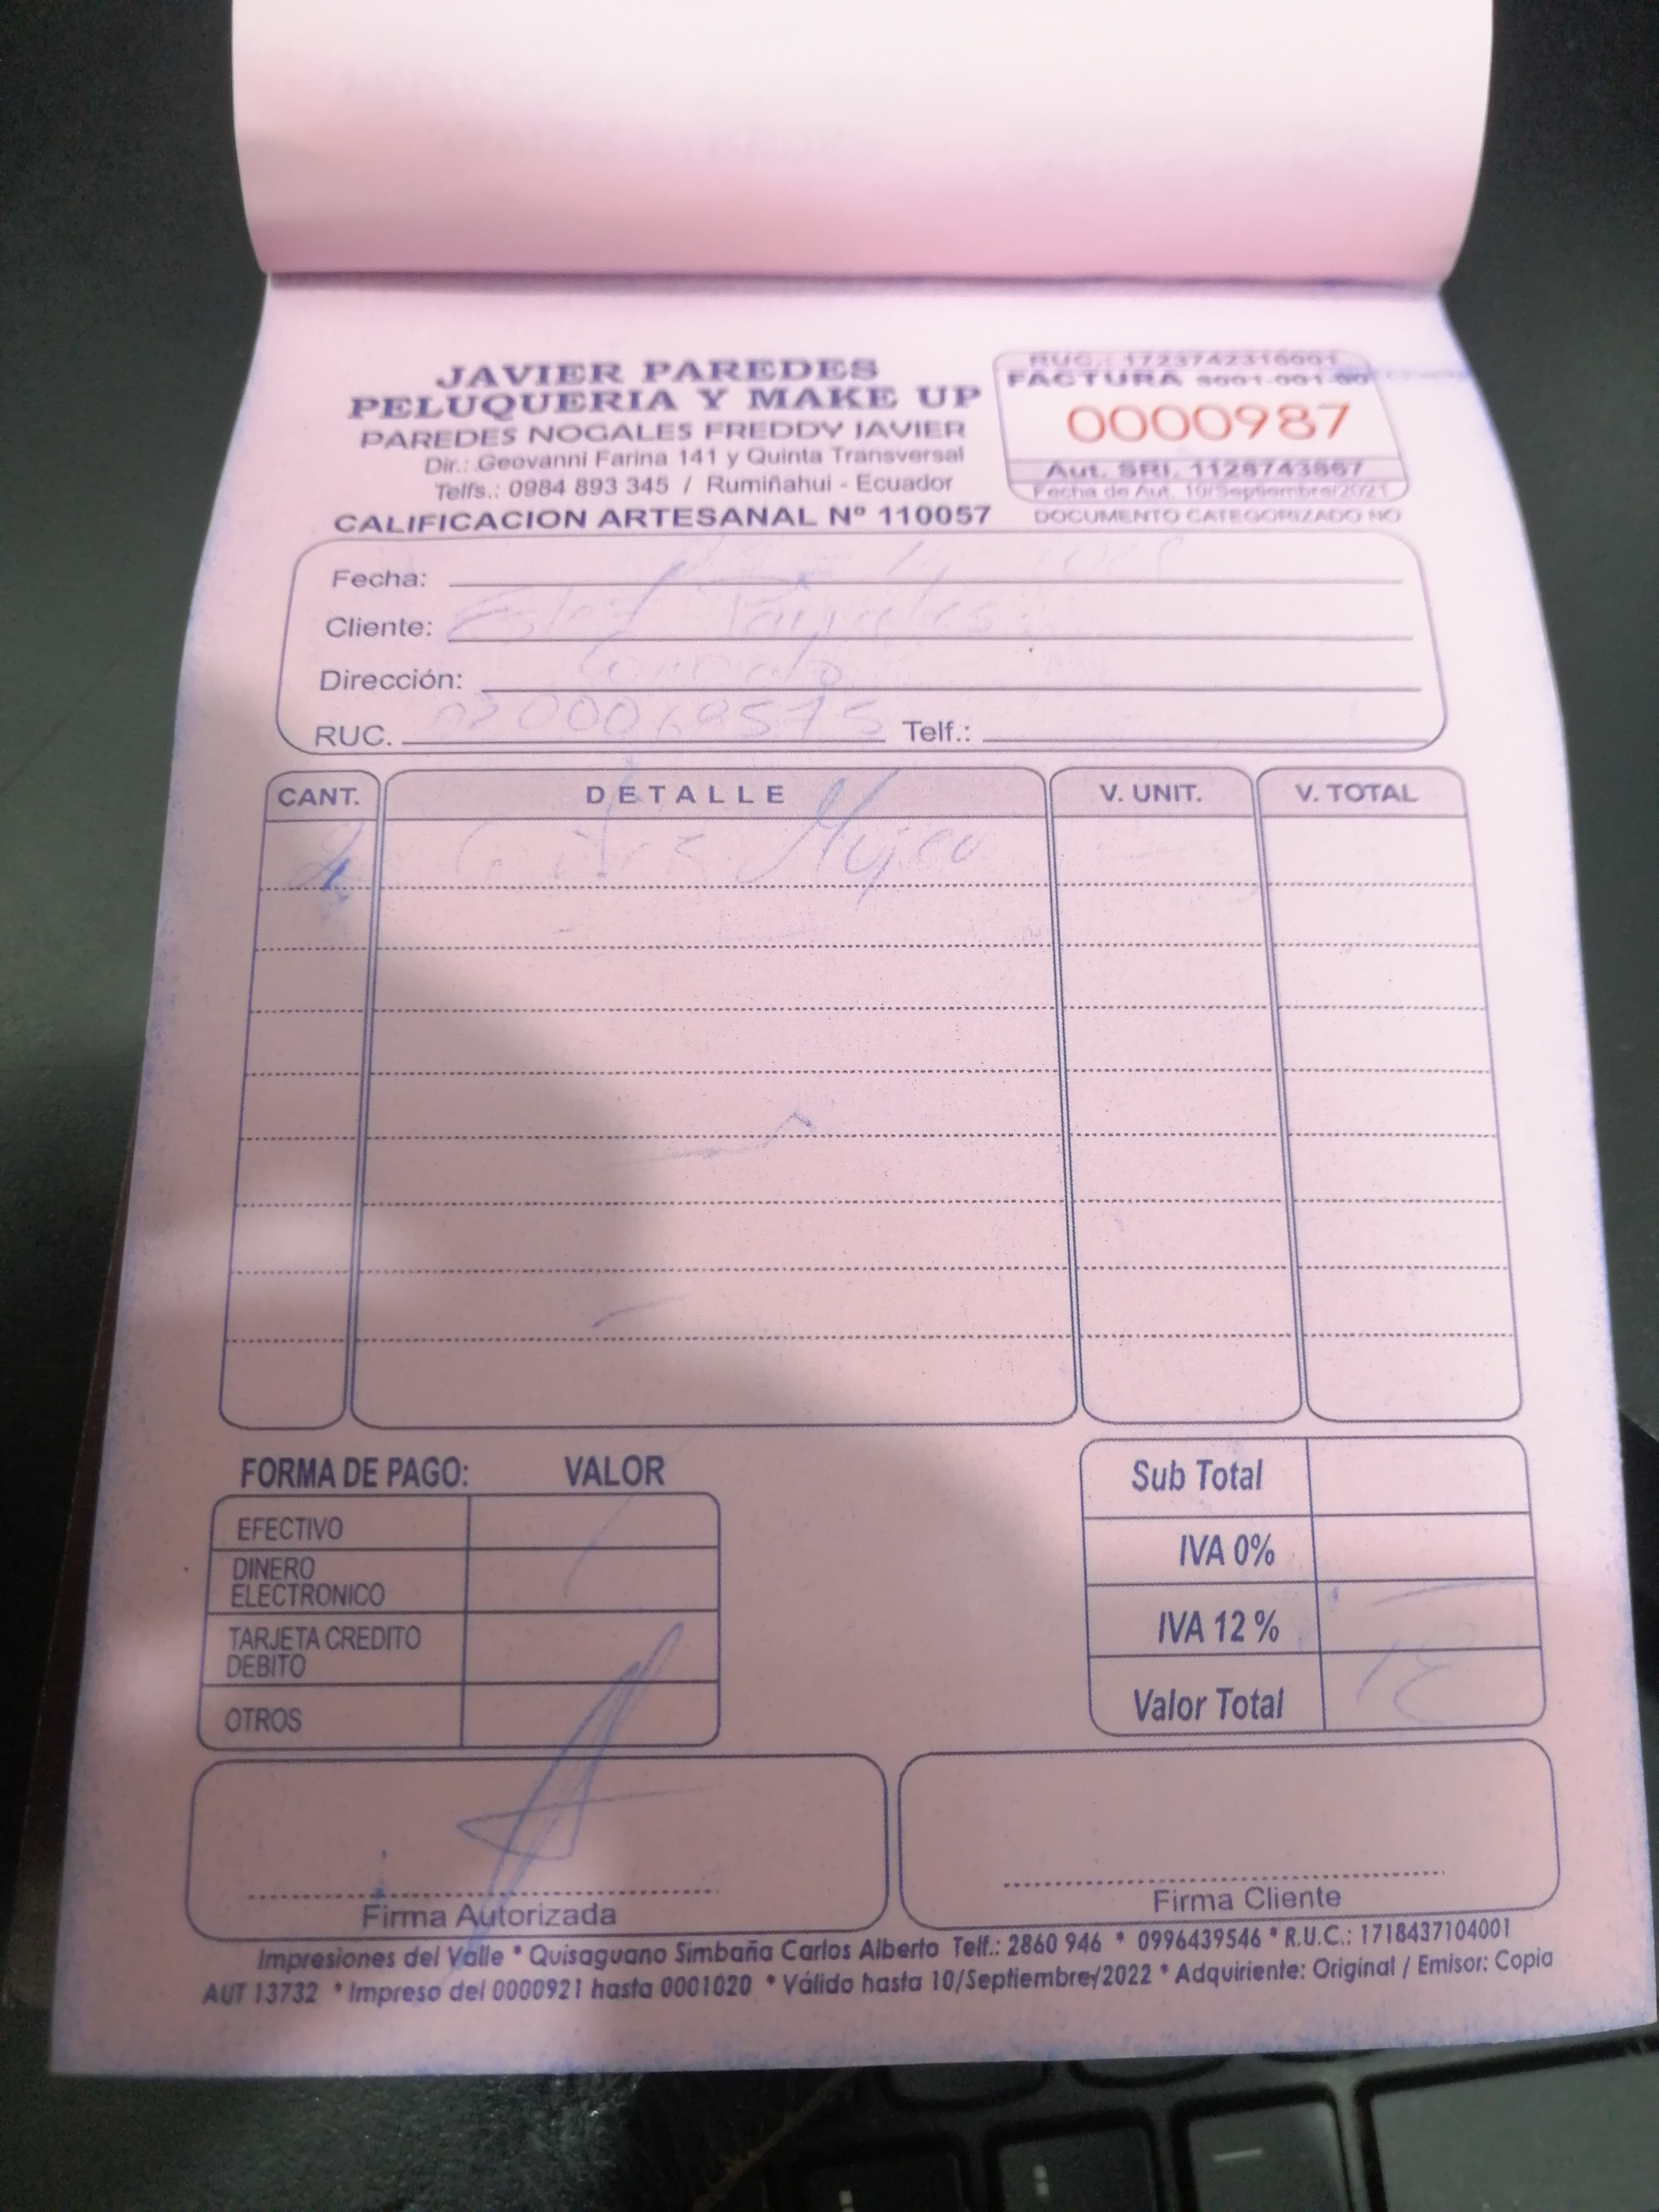 JAVIER PAREDES
PELUQUERIA Y MAKE UP
PAREDES NOGALES FREDDY JAVIER
Dir.: Geovanni Farina 141 y Quinta Transversal
Telfs.: 0984 893 345 / Rumiñahui - Ecuador
CALIFICACION ARTESANAL Nº 110057
RUC.: 1723742316001
FACTURA S001-001-00
0000987
Aut. SRI. 1128743867
Fecha de Aut. 10/Septiembre/2021
DOCUMENTO CATEGORIZADO NO
Fecha:
Cliente:
Dirección:
RUC. Telf.:
CANT. DETALLE V. UNIT. V. TOTAL
Mujer
FORMA DE PAGO: VALOR
EFECTIVO
DINERO
ELECTRONICO
TARJETA CREDITO
DEBITO
OTROS
Sub Total
IVA 0%
IVA 12 %
Valor Total
Firma Autorizada
Firma Cliente
Impresiones del Valle * Quisaguano Simbaña Carlos Alberto Telf.: 2860 946 * 0996439546 * R.U.C.: 1718437104001
AUT 13732 * Impreso del 0000921 hasta 0001020 * Válido hasta 10/Septiembre/2022 * Adquiriente: Original / Emisor: Copia